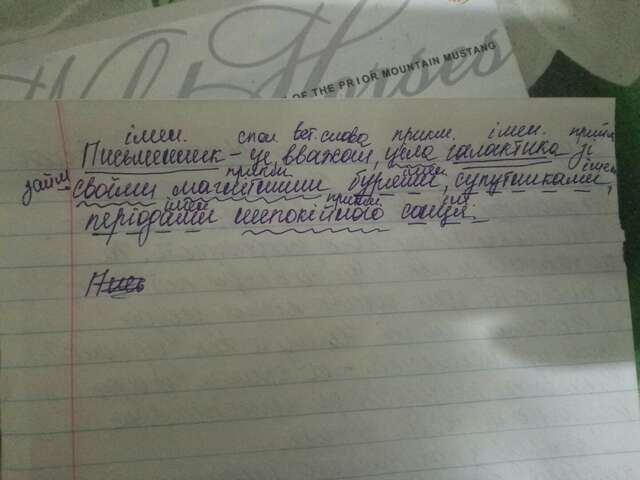 Wild Horses
OF THE PRIOR MOUNTAIN MUSTANG
імен. спол вст.слова прикм. імен. прийм
Письменник – це, вважай, ціла галактика зі
займ прикм імен імен
своїми магнітними бурями, супутниками,
імен прикм імен
періодами неспокійного сонця.